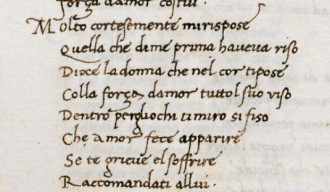 forza damor costui.
Molto cortesemente mirispose
Quella che dime prima haveva riso
Dicce la donna che nel cor tipose
Colla forza damor tuttol suo viso
Dentro pergliochi timiro si fiso
Che amor fece apparire
Se te grieve el soffrire
Raccomandati allui.